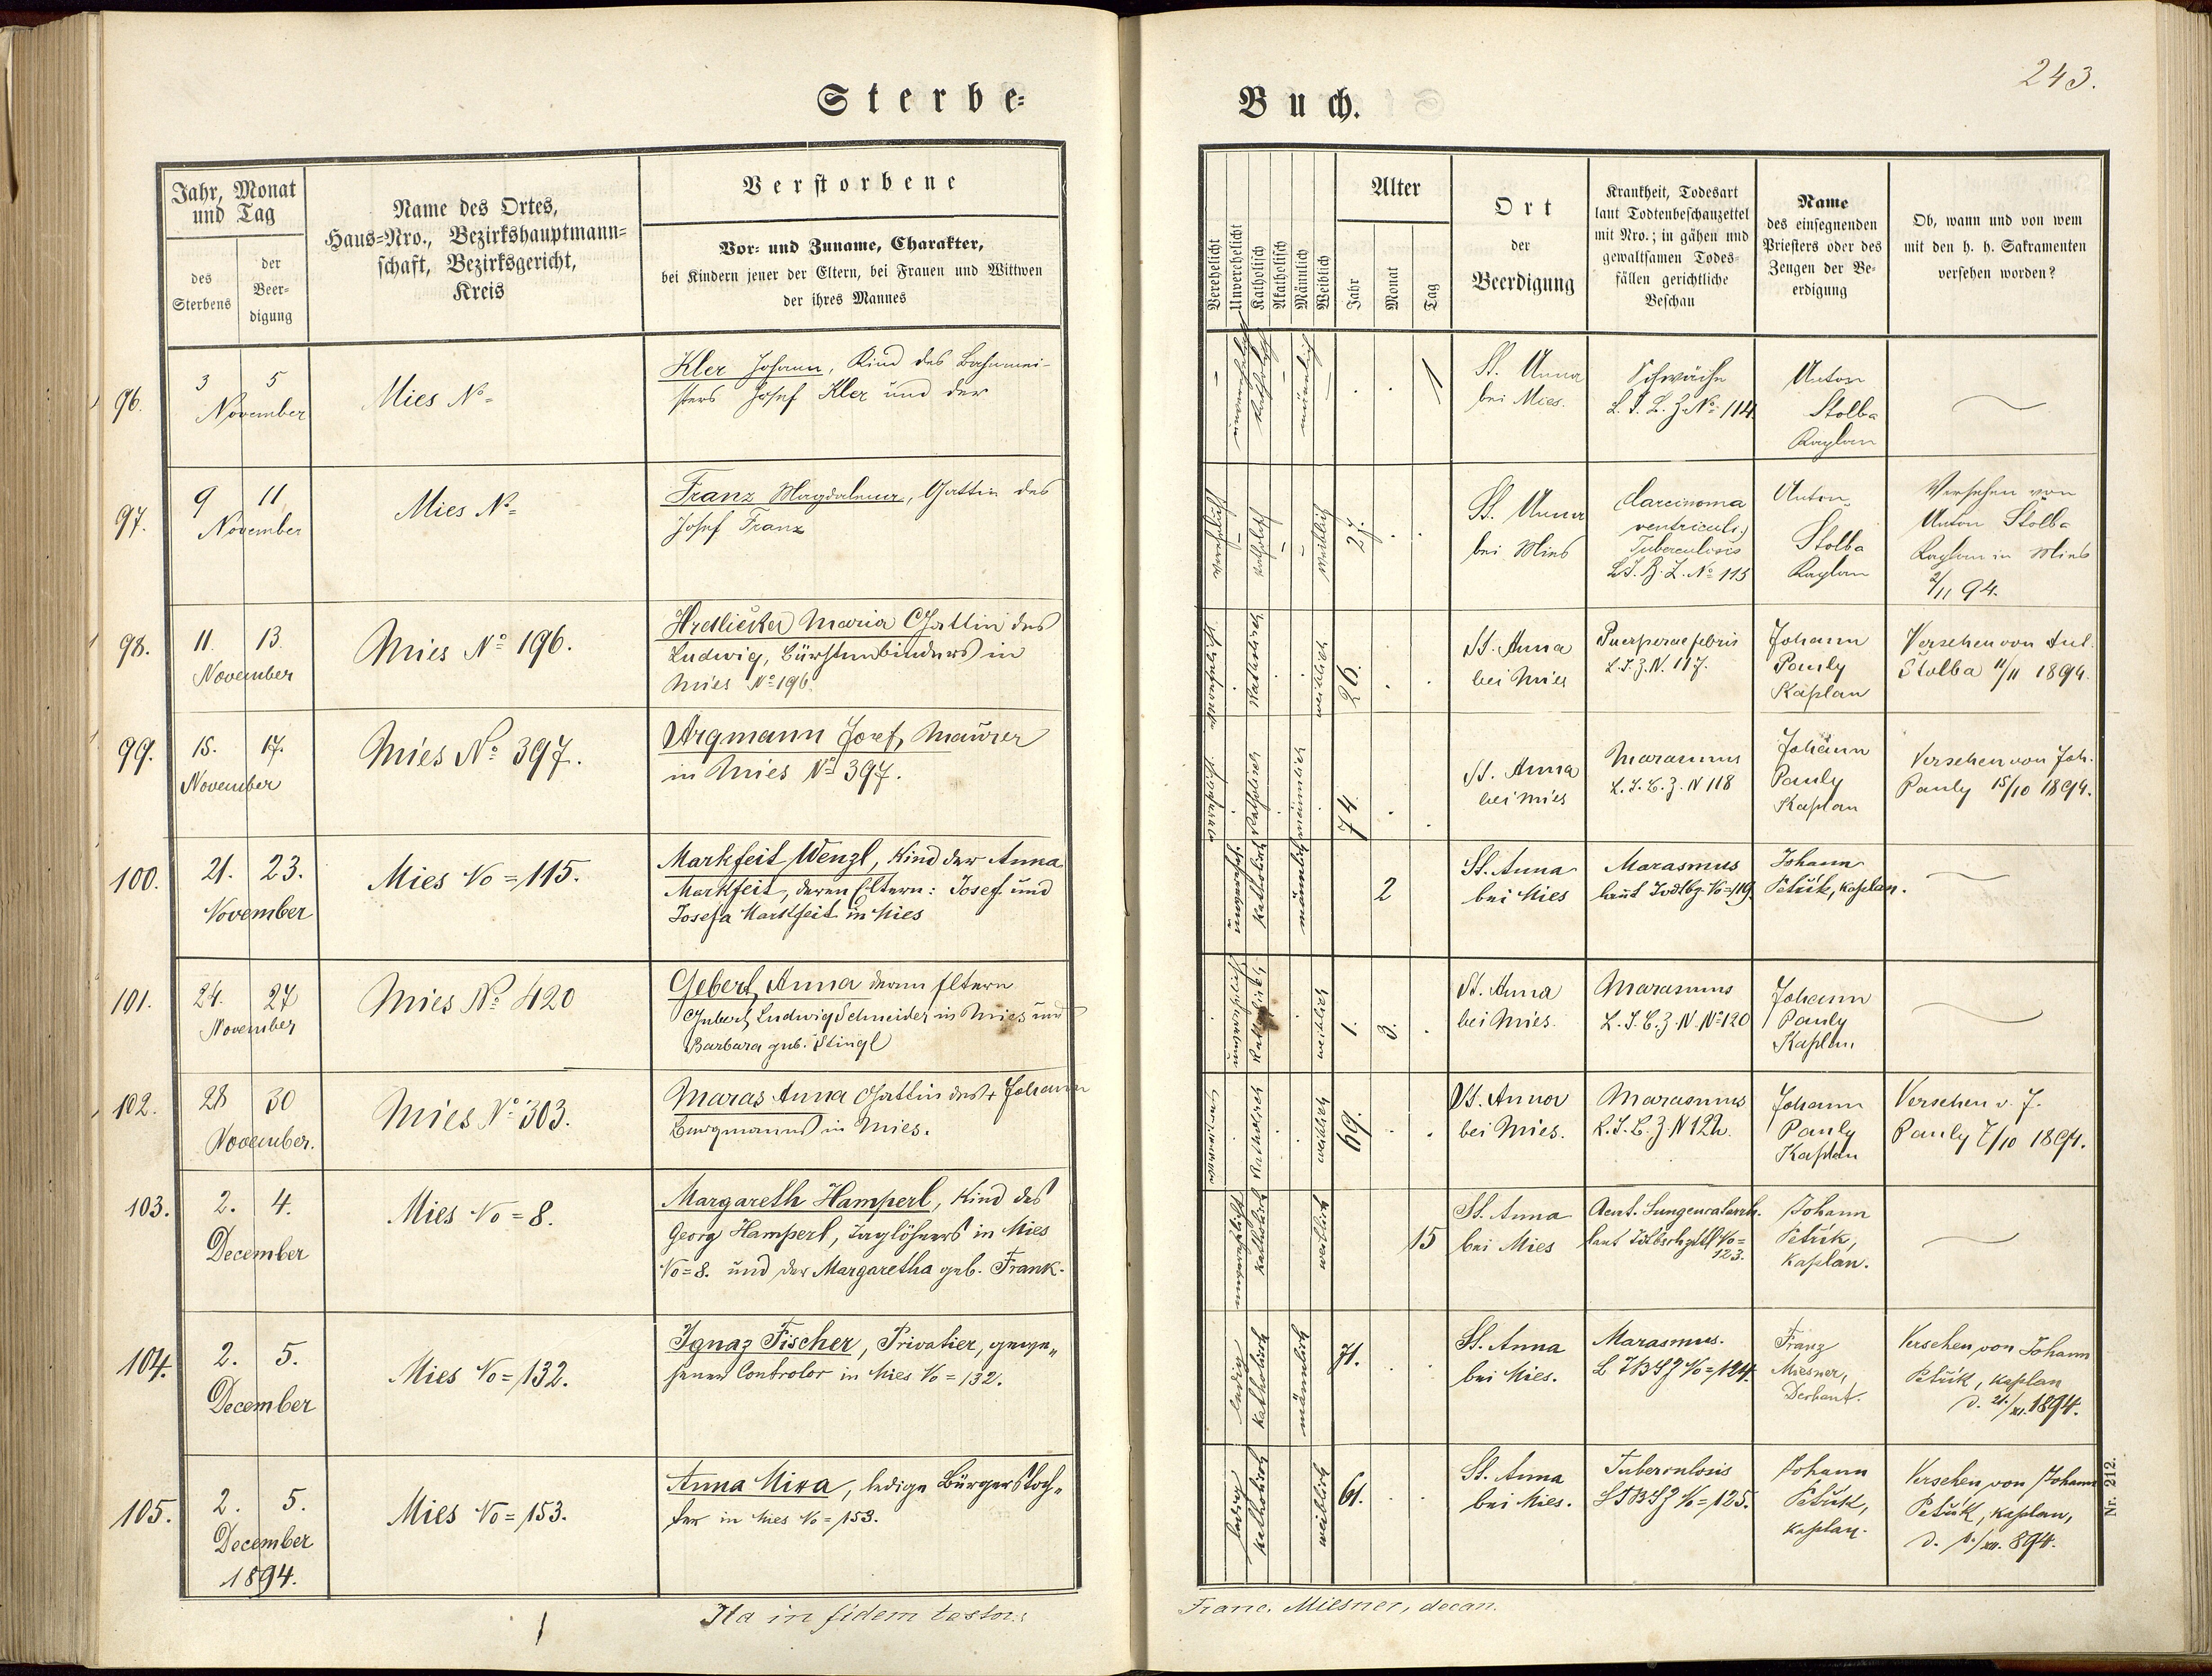 Sterbe-
Buch.
243.
Jahr, Monat
und Tag
des
Sterbens
der
Beer-
digung
Name des Ortes,
Haus-Nro., Bezirkshauptmann-
schaft, Bezirksgericht,
Kreis
Verstorbene
Vor- und Zuname, Charakter,
bei Kindern jener der Eltern, bei Frauen und Wittwen
der ihres Mannes
Verehelicht
Unverehelicht
Katholisch
Akatholisch
Männlich
Weiblich
Alter
Jahr
Monat
Tag
Ort
der
Beerdigung
Krankheit, Todesart
laut Todtenbeschauzettel
mit Nro.; in gähen und
gewaltsamen Todes-
fällen gerichtliche
Beschau
Name
des einsegnenden
Priesters oder des
Zeugen der Be-
erdigung
Ob, wann und von wem
mit den h. h. Sakramenten
versehen worden?
96.
3 5
November
Mies No
Kler Johann, Kind des Bahnmei-
sters Josef Kler und der
katholisch
männlich
1
St. Anna
bei Mies.
Schwäche
L. T. B. Z. No 114
Anton
Stolba
Kaplan
97.
9 11
November
Mies No
Franz Magdalena, Gattin des
Josef Franz
katholisch
weiblich
27.
St. Anna
bei Mies
Carcinoma
ventriculi,
Tuberculosis
L.T.B.Z. No 115
Anton
Stolba
Kaplan
Versehen von
Anton Stolba
Kaplan in Mies
2/11 94.
98.
11. 13.
November
Mies No 196.
Hrdlička Maria Gattin des
Ludwig, Bürstenbinders in
Mies No 196.
katholisch
weiblich
26.
St. Anna
bei Mies
Puerperae febris
L.T.Z.N. 117.
Johann
Pauly
Kaplan
Versehen von Ant.
Stolba 11/11 1894.
99.
15. 17.
November
Mies No 397.
Argmann Josef, Maurer
in Mies No 397.
katholisch
männlich
74.
St. Anna
bei Mies
Marasmus
L.T.B.Z. N 118
Johann
Pauly
Kaplan
Versehen von Joh.
Pauly 15/10 1894.
100.
21. 23.
November
Mies No = 115.
Markfeit Wenzl, Kind der Anna
Markfeit, deren Eltern: Josef und
Josefa Markfeit in Mies
katholisch
männlich
2
St. Anna
bei Mies
Marasmus
laut Todtbz. No=119.
Johann
Petřík, Kaplan.
101.
24. 27
November
Mies No 420
Gebert Anna deren Eltern
Gebert Ludwig Schneider in Mies und
Barbara geb. Stingl
unverehelicht
katholisch
weiblich
1. 3.
St. Anna
bei Mies.
Marasmus
L.T.B.Z.N. No 120
Johann
Pauly
Kaplan
102.
28 30
November.
Mies No 303.
Maras Anna Gattin des + Johann
Bergmanns in Mies.
katholisch
weiblich
69.
St. Anna
bei Mies.
Marasmus
L.T.B.Z. N 122.
Johann
Pauly
Kaplan
Versehen v. J.
Pauly 7/10 1894.
103.
2. 4.
December
Mies No = 8.
Margareth Hamperl, Kind des
Georg Hamperl, Taglöhners in Mies
No=8. und der Margaretha geb. Frank.
unverehelicht
katholisch
weiblich
15
St. Anna
bei Mies
Acut. Lungencatarrh.
laut Tdtbschzttl No=
123.
Johann
Petřík,
Kaplan.
104.
2. 5.
December
Mies No = 132.
Ignaz Fischer, Privatier, gewe„
sener Controlor in Mies No = 132.
ledig
katholisch
männlich
71.
St. Anna
bei Mies.
Marasmus.
L T B S Z No = 124.
Franz
Miesner,
Dechant.
Versehen von Johann
Petřík, Kaplan
d. 21./XI. 1894.
105.
2. 5.
December
1894.
Mies No = 153.
Anna Mixa, ledige Bürgerstoch„
ter in Mies No = 153.
ledig
katholisch
weiblich
61.
St. Anna
bei Mies.
Tuberculosis
L T B S Z No = 125.
Johann
Petřík,
Kaplan.
Versehen von Johann
Petřík, Kaplan,
d. 1./XII. 894.
Nr. 212.
Ita in fidem testor:
Franc. Miesner, decan.